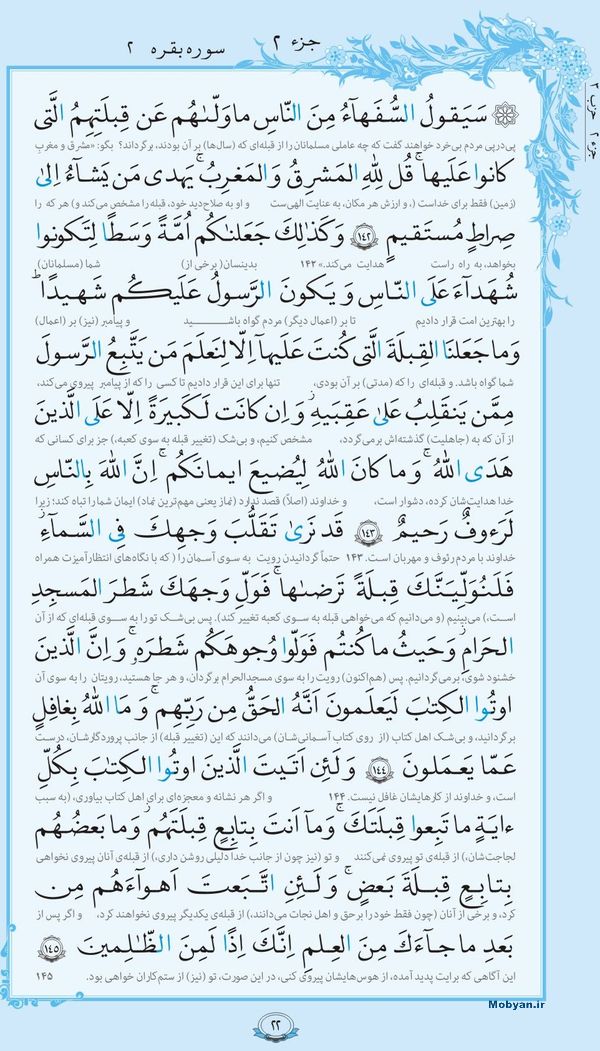 جزء ۲
سوره بقره ۲
جزء ۲ حزب ۳
سَيَقولُ السُّفَهآءُ مِنَ النّاسِ ما وَلّىٰهُم عَن قِبلَتِهِمُ الَّتى
پی‌درپی مردم بی‌خرد خواهند گفت که چه عاملی مسلمانان را از قبله‌ای که (سال‌ها) بر آن بودند، برگرداند؟ بگو: «مشرق و مغربِ
كانوا عَلَيها ۚ قُل لِلّٰهِ المَشرِقُ وَالمَغرِبُ ۚ يَهدى مَن يَشآءُ اِلىٰ
(زمین) فقط برای خداست (، و ارزش هر مکان، به عنایت الهی‌ست و او به صلاح‌دید خود، قبله را مشخص می‌کند) و هر که را
صِراطٍ مُستَقيمٍ ﴿۱۴۲﴾ وَكَذٰلِكَ جَعَلنٰكُم اُمَّةً وَسَطًا لِتَكونوا
بخواهد، به راه راست هدایت می‌کند.» ۱۴۲ بدینسان (برخی از) شما (مسلمانان)
شُهَدآءَ عَلَى النّاسِ وَ يَكونَ الرَّسولُ عَلَيكُم شَهيدًا ۗ
را بهترین امت قرار دادیم تا بر (اعمال دیگر) مردم گواه باشید و پیامبر (نیز) بر (اعمال)
وَما جَعَلنَا القِبلَةَ الَّتى كُنتَ عَلَيهآ اِلّا لِنَعلَمَ مَن يَتَّبِعُ الرَّسولَ
شما گواه باشد. و قبله‌ای را که (مدتی) بر آن بودی، تنها برای این قرار دادیم تا کسی را که از پیامبر پیروی می‌کند،
مِمَّن يَنقَلِبُ عَلىٰ عَقِبَيهِ ۚ وَاِن كانَت لَكَبيرَةً اِلّا عَلَى الَّذينَ
از آن که به (جاهلیت) گذشته‌اش برمی‌گردد، مشخص کنیم، و بی‌شک (تغییر قبله به سوی کعبه،) جز برای کسانی که
هَدَى اللّٰهُ ۗ وَما كانَ اللّٰهُ لِيُضيعَ ايمانَكُم ۚ اِنَّ اللّٰهَ بِالنّاسِ
خدا هدایت‌شان کرده، دشوار است، و خداوند (اصلاً) قصد ندارد (نماز یعنی مهم‌ترین نماد) ایمان شما را تباه کند؛ زیرا
لَرَءوفٌ رَحيمٌ ﴿۱۴۳﴾ قَد نَرىٰ تَقَلُّبَ وَجهِكَ فِى السَّمآءِ ۖ
خداوند با مردم رئوف و مهربان است. ۱۴۳ حتماً گردانیدن رویت به سوی آسمان را (که با نگاه‌های انتظارآمیزت همراه
فَلَنُوَلِّيَنَّكَ قِبلَةً تَرضىٰها ۚ فَوَلِّ وَجهَكَ شَطرَ المَسجِدِ
است،) می‌بینیم (و می‌دانیم که می‌خواهی قبله به سوی کعبه تغییر کند). پس بی‌شک تو را به سوی قبله‌ای که از آن
الحَرامِ ۚ وَحَيثُ ما كُنتُم فَوَلّوا وُجوهَكُم شَطرَه ۗ وَاِنَّ الَّذينَ
خشنود شوی، برمی‌گردانیم. پس (هم‌اکنون) رویت را به سوی مسجدالحرام برگردان، و هر جا هستید، رویتان را به سوی آن
اوتُوا الكِتٰبَ لَيَعلَمونَ اَنَّهُ الحَقُّ مِن رَبِّهِم ۗ وَ مَا اللّٰهُ بِغافِلٍ
برگردانید، و بی‌شک اهل کتاب (از روی کتاب آسمانی‌شان) می‌دانند که این (تغییر قبله) از جانب پروردگارشان، درست
عَمّا يَعمَلونَ ﴿۱۴۴﴾ وَ لَئِن اَتَيتَ الَّذينَ اوتُوا الكِتٰبَ بِكُلِّ
است، و خداوند از کارهایشان غافل نیست. ۱۴۴ و اگر هر نشانه و معجزه‌ای برای اهل کتاب بیاوری، (به سبب
ءايَةٍ ما تَبِعوا قِبلَتَكَ ۚ وَمآ اَنتَ بِتابِعٍ قِبلَتَهُم ۚ وَما بَعضُهُم
لجاجت‌شان،) از قبله‌ی تو پیروی نمی‌کنند و تو (نیز چون از جانب خدا دلیلی روشن داری،) از قبله‌ی آنان پیروی نخواهی
بِتابِعٍ قِبلَةَ بَعضٍ ۚ وَ لَئِنِ اتَّبَعتَ اَهوآءَهُم مِن
کرد، و برخی از آنان (چون فقط خود را بر حق و اهل نجات می‌دانند،) از قبله‌ی یکدیگر پیروی نخواهند کرد، و اگر پس از
بَعدِ ما جآءَكَ مِنَ العِلمِ ۙ اِنَّكَ اِذًا لَمِنَ الظّٰلِمينَ ﴿۱۴۵﴾
این آگاهی که برایت پدید آمده، از هوس‌هایشان پیروی کنی، در این صورت، تو (نیز) از ستم‌کاران خواهی بود. ۱۴۵
Mobyan.ir
۲۲